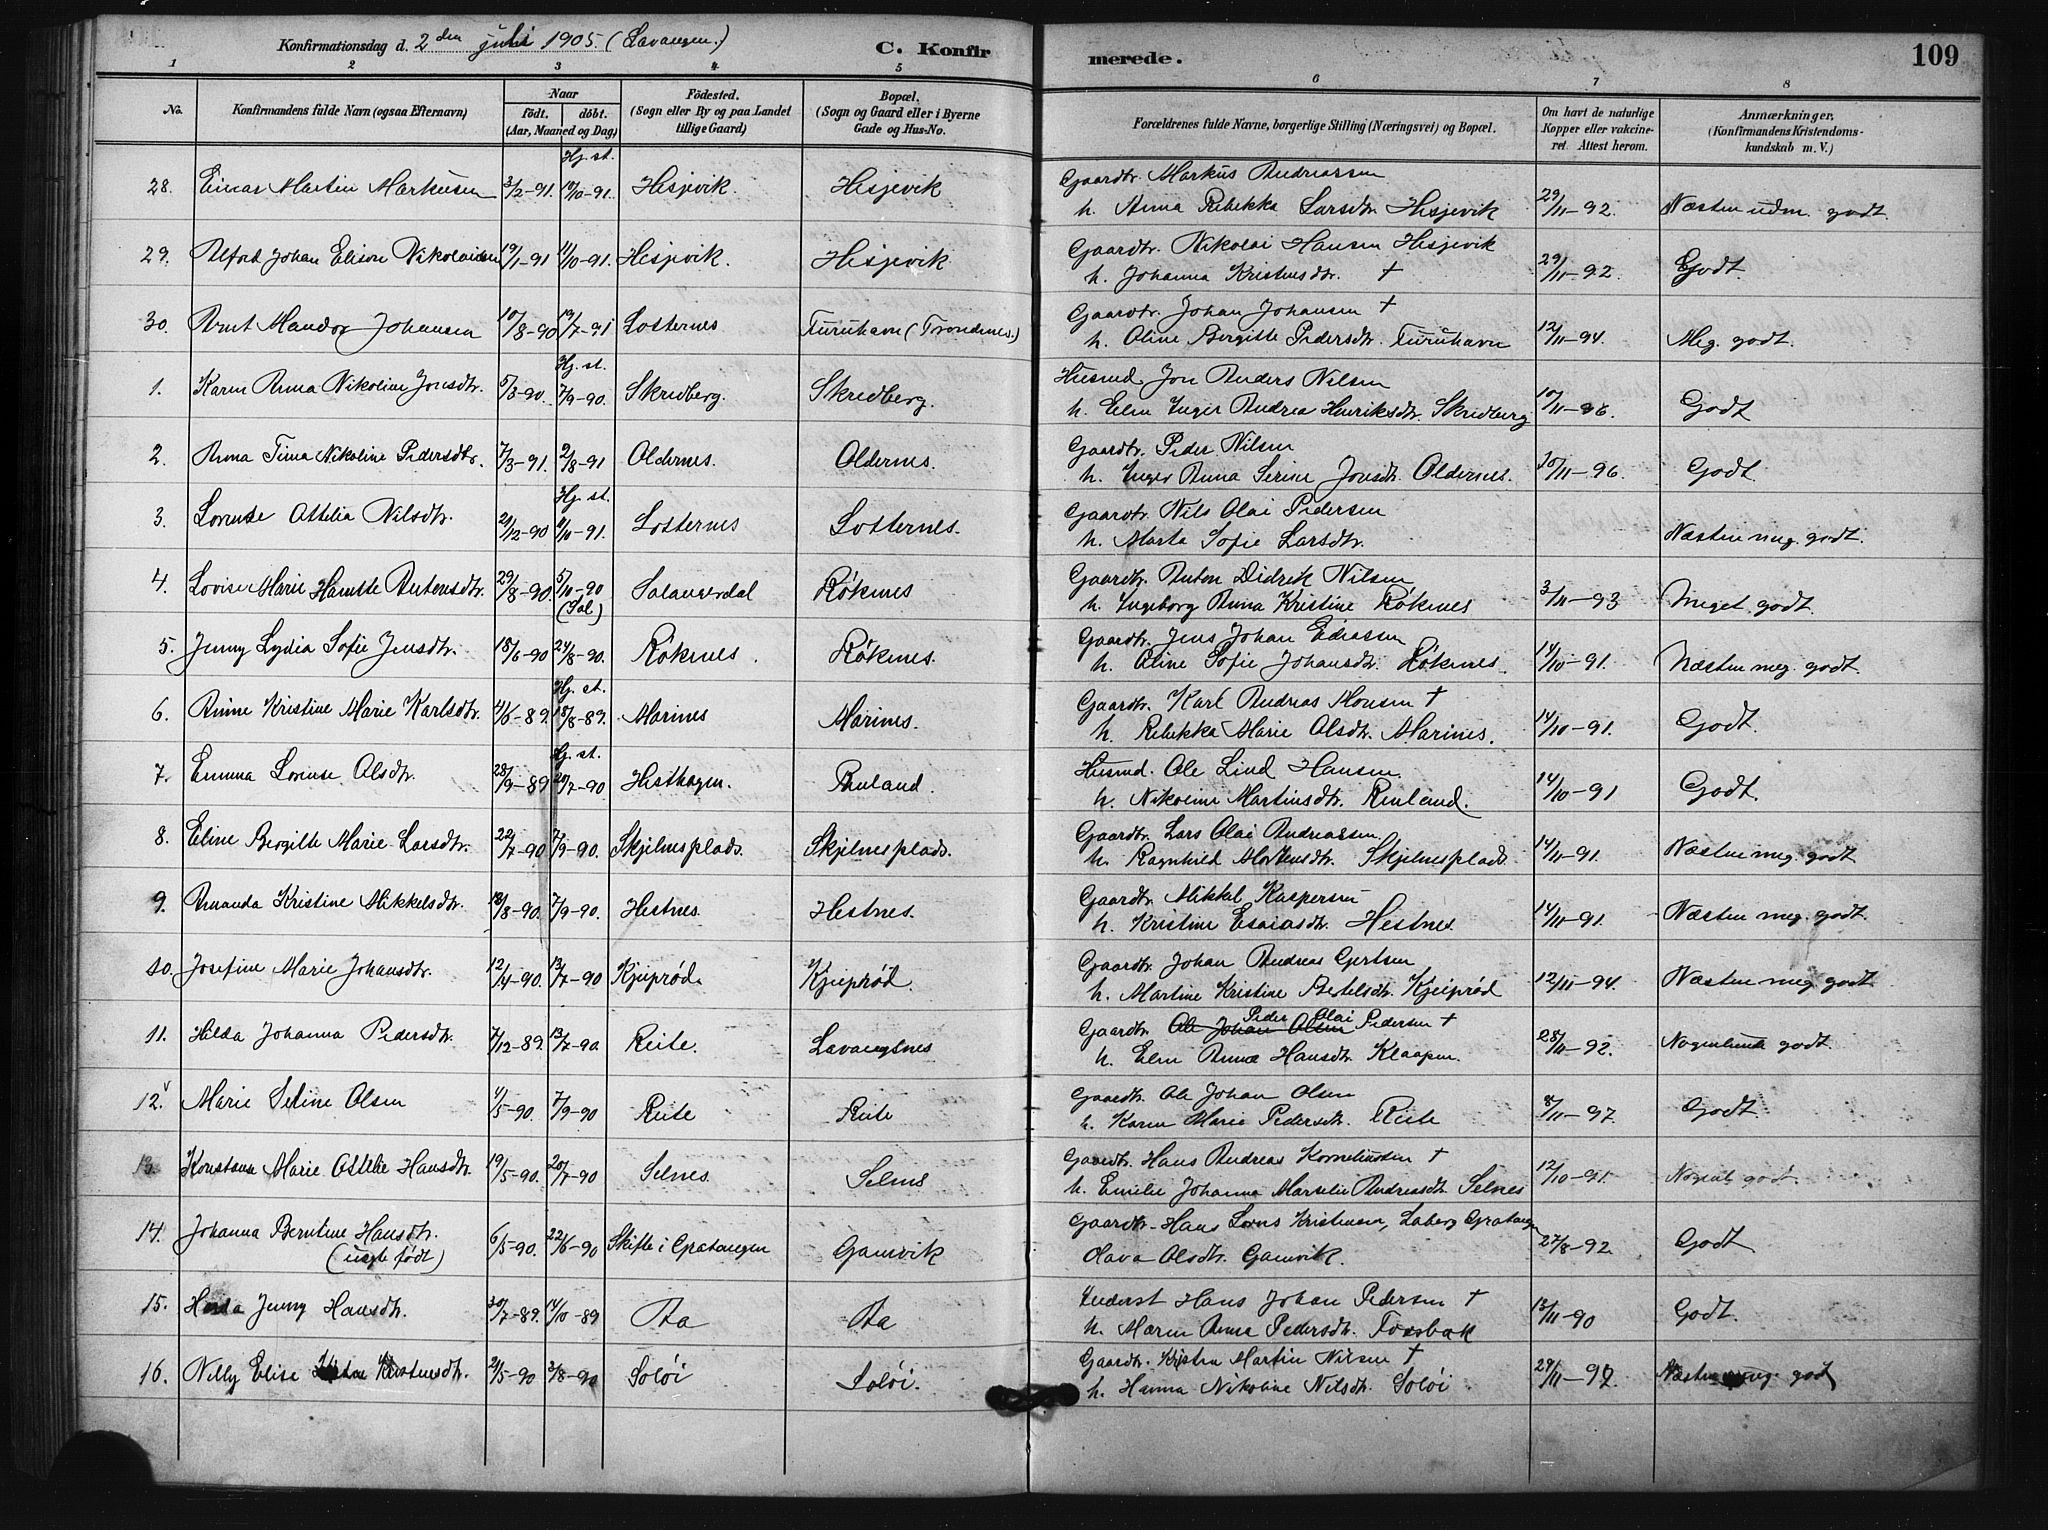 Konfirmationsdag d. 2den juli 1905. (Lavangen.) C. Konfir merede. 109
1 2 3 4 5 6 7 8
No. Konfirmandens fulde Navn (ogsaa Efternavn) Naar födt. döbt. (Aar, Maaned og Dag) Födested. (Sogn eller By og paa Landet tillige Gaard) Bopæl. (Sogn og Gaard eller i Byerne Gade og Hus-No. Forældrenes fulde Navne, borgerlige Stilling (Næringsvei) og Bopæl. Om havt de naturlige Kopper eller vakcineret. Attest herom. Anmærkninger. (Konfirmandens Kristendomskundskab m. V.)
28. Einar Martin Markusen 3/2-91. Hj. st. 10/10-91. Hesjevik. Hesjevik Gaardbr. Markus Andreassen
h. Anna Rebekka Larsdtr. Hesjevik 29/11-92. Næsten udm. godt.
29. Alfred Johan Elison Nikolaisen 19/1-91 11/10-91. Hesjevik. Hesjevik Gaardbr. Nikolai Hansen Hesjevik
h. Johanna Kristensdtr. † 29/11-92. Godt.
30. Arnt Mandor Johansen 10/8-90 19/7-91 Lotternes Furuhavn (Trondenes.) Gaardbr. Johan Johansen †
h. Oline Bergitte Pedersdtr. Furuhavn 12/11-94. Meg. godt.
1. Karen Anna Nikoline Jonsdtr. 5/3-90. Hj. st. 7/9-90. Skredberg. Skredberg. Husmd Jon Anders Nilsen
h. Elen Inger Andrea Henriksdtr. Skredberg 10/11-96. Godt
2. Anna Tina Nikoline Pedersdtr. 7/3-91. 2/8-91 Oldernes. Oldernes. Gaardbr. Peder Nilsen
h. Inger Anna Serine Jonsdtr. Oldernes. 10/11-96. Godt.
3. Lorense Attelia Nilsdtr. 21/12-90 Hj. st. 4/10-91. Lotternes Lotternes. Gaardbr. Nils Olai Pedersen
h. Marta Sofie Larsdtr. Næsten meg. godt.
4. Lovise Marie Hansine Antonsdtr. 29/8-90. 5/10-90 (Sal) Salangsdal Rökenes Gaardbr. Anton Didrik Nilsen
h. Ingeborg Anna Kristine Rökenes 3/11-93 Meget godt.
5. Jenny Lydia Sofie Jensdtr. 18/6-90 24/8-90. Rökenes. Rökenes. Gaardbr. Jens Johan Eidessen
h. Oline Sofie Johansdtr. Rökenes. 14/10-91. Næsten meg. godt.
6. Anne Kristine Marie Karlsdtr. 4/6-89. Hj. st. 18/8-89. Marines Marines. Gaardbr. Karl Andreas Monsen †
h. Rebekka Marie Olsdtr. Marines. 14/10-91. Godt.
7. Emma Lorense Olsdtr. 28/9-89 Hj. st. 20/7-90 Hesthagen. Renland. Husmd. Ole Lind Hansen.
h. Nikoline Martinsdtr. Renland. 14/10-91 Godt.
8. Eline Bergitte Marie Larsdtr. 22/7-90 7/9-90. Skjelnesplads. Skjelnesplads. Gaardbr. Lars Olai Andreassen.
h. Ragnhild Mortensdtr. Skjelnesplads 14/11-91. Næsten meg. godt
9. Amanda Kristine Mikkelsdtr. 18/8-90. 7/9-90. Hestnes. Hestnes. Gaardbr. Mikkal Kaspersen
h. Kristine Esaiasdtr. Hestnes. 14/11-91. Næsten meg. godt.
10. Josefine Marie Johansdtr. 12/4-90. 13/7-90 Kjeiprød. Kjeiprød. Gaardbr. Johan Andreas Gertsen
h. Martine Kristine Bertelsdtr. Kjeiprød 12/11-94. Næsten meg. godt
11. Hilda Johanna Pedersdtr. 7/12-89. 13/7-90. Reite. Lavangsnes Gaardbr. Ole Johan Olsen Peder Olai Pedersen †
h. Elen Anna Hansdtr. Klaapen. 28/11-92. Nogenlunde godt.
12. Marie Seline Olsen 1/5-90. 7/9-90 Reite Reite Gaardbr. Ole Johan Olsen
h. Karen Marie Pedersdtr. Reite 8/11-97. Godt
13. Konstanse Marie Attelie Hansdtr. 19/5-90. 20/7-90 Selnes. Selnes Gaardbr. Hans Andreas Korneliussen †
h. Emelie Johanna Marselie Andreasdtr. Selnes 12/10-91. godt.
14. Johanna Berntine Hansdtr. (uægte født) 6/5-90. 22/6-90 Skifte i Gratangen Gamvik Gaardbr. Hans Lorens Kristensen, Laberg Gratangen
Olava Olsdtr. Gamvik. 27/8-92. Godt
15. Jenny Hansdtr. 30/7-89. 14/10-89 Aa Aa Inderst Hans Johan Pedersen †
h. Maren Anna Pedersdtr. Fossbak 13/11-90 Godt.
16. Nelly Elise Kristensdtr. 21/5-90 3/8-90 Soløi Soløi. Gaardbr. Kristen Martin Nilsen †
h. Hanna Nikoline Nilsdtr. Soløi. 29/11-92. Næsten meg. godt